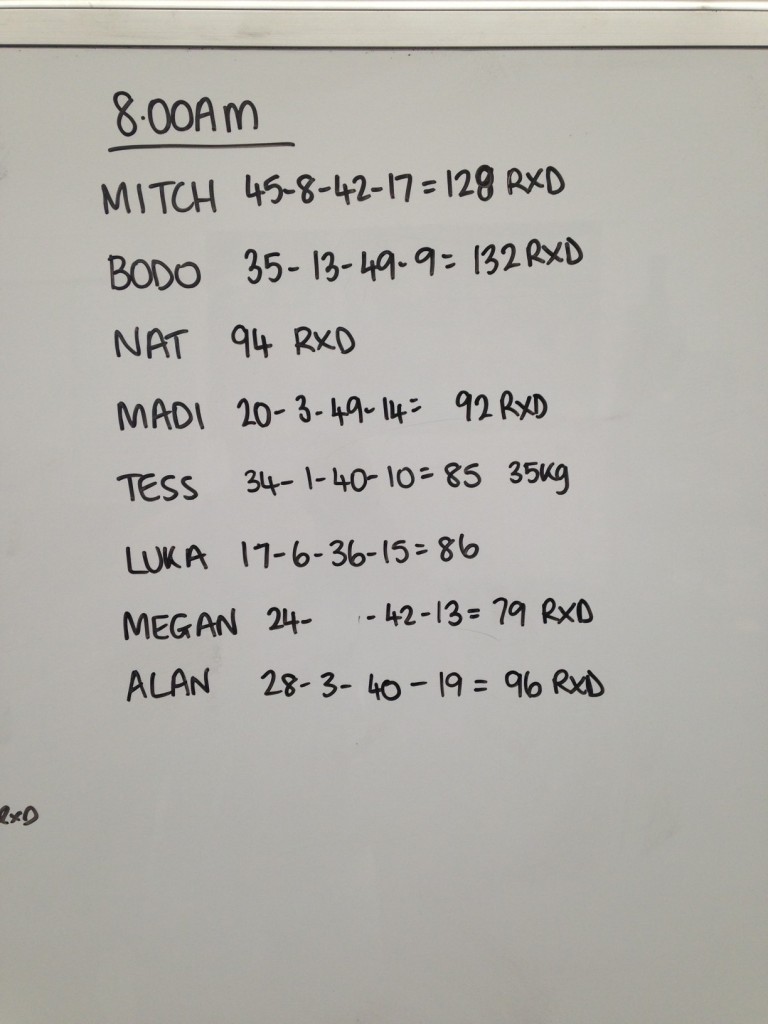 8.00AM
MITCH 45-8-42-17=128 RXD
BODO 35-13-49-9= 132 RXD
NAT 94 RXD
MADI 20-3-49-14= 92 RXD
TESS 34-1-40-10=85 35Kg
LUKA 17-6-36-15=86
MEGAN 24- -42-13=79 RXD
ALAN 28-3-40-19=96 RXD
RXD